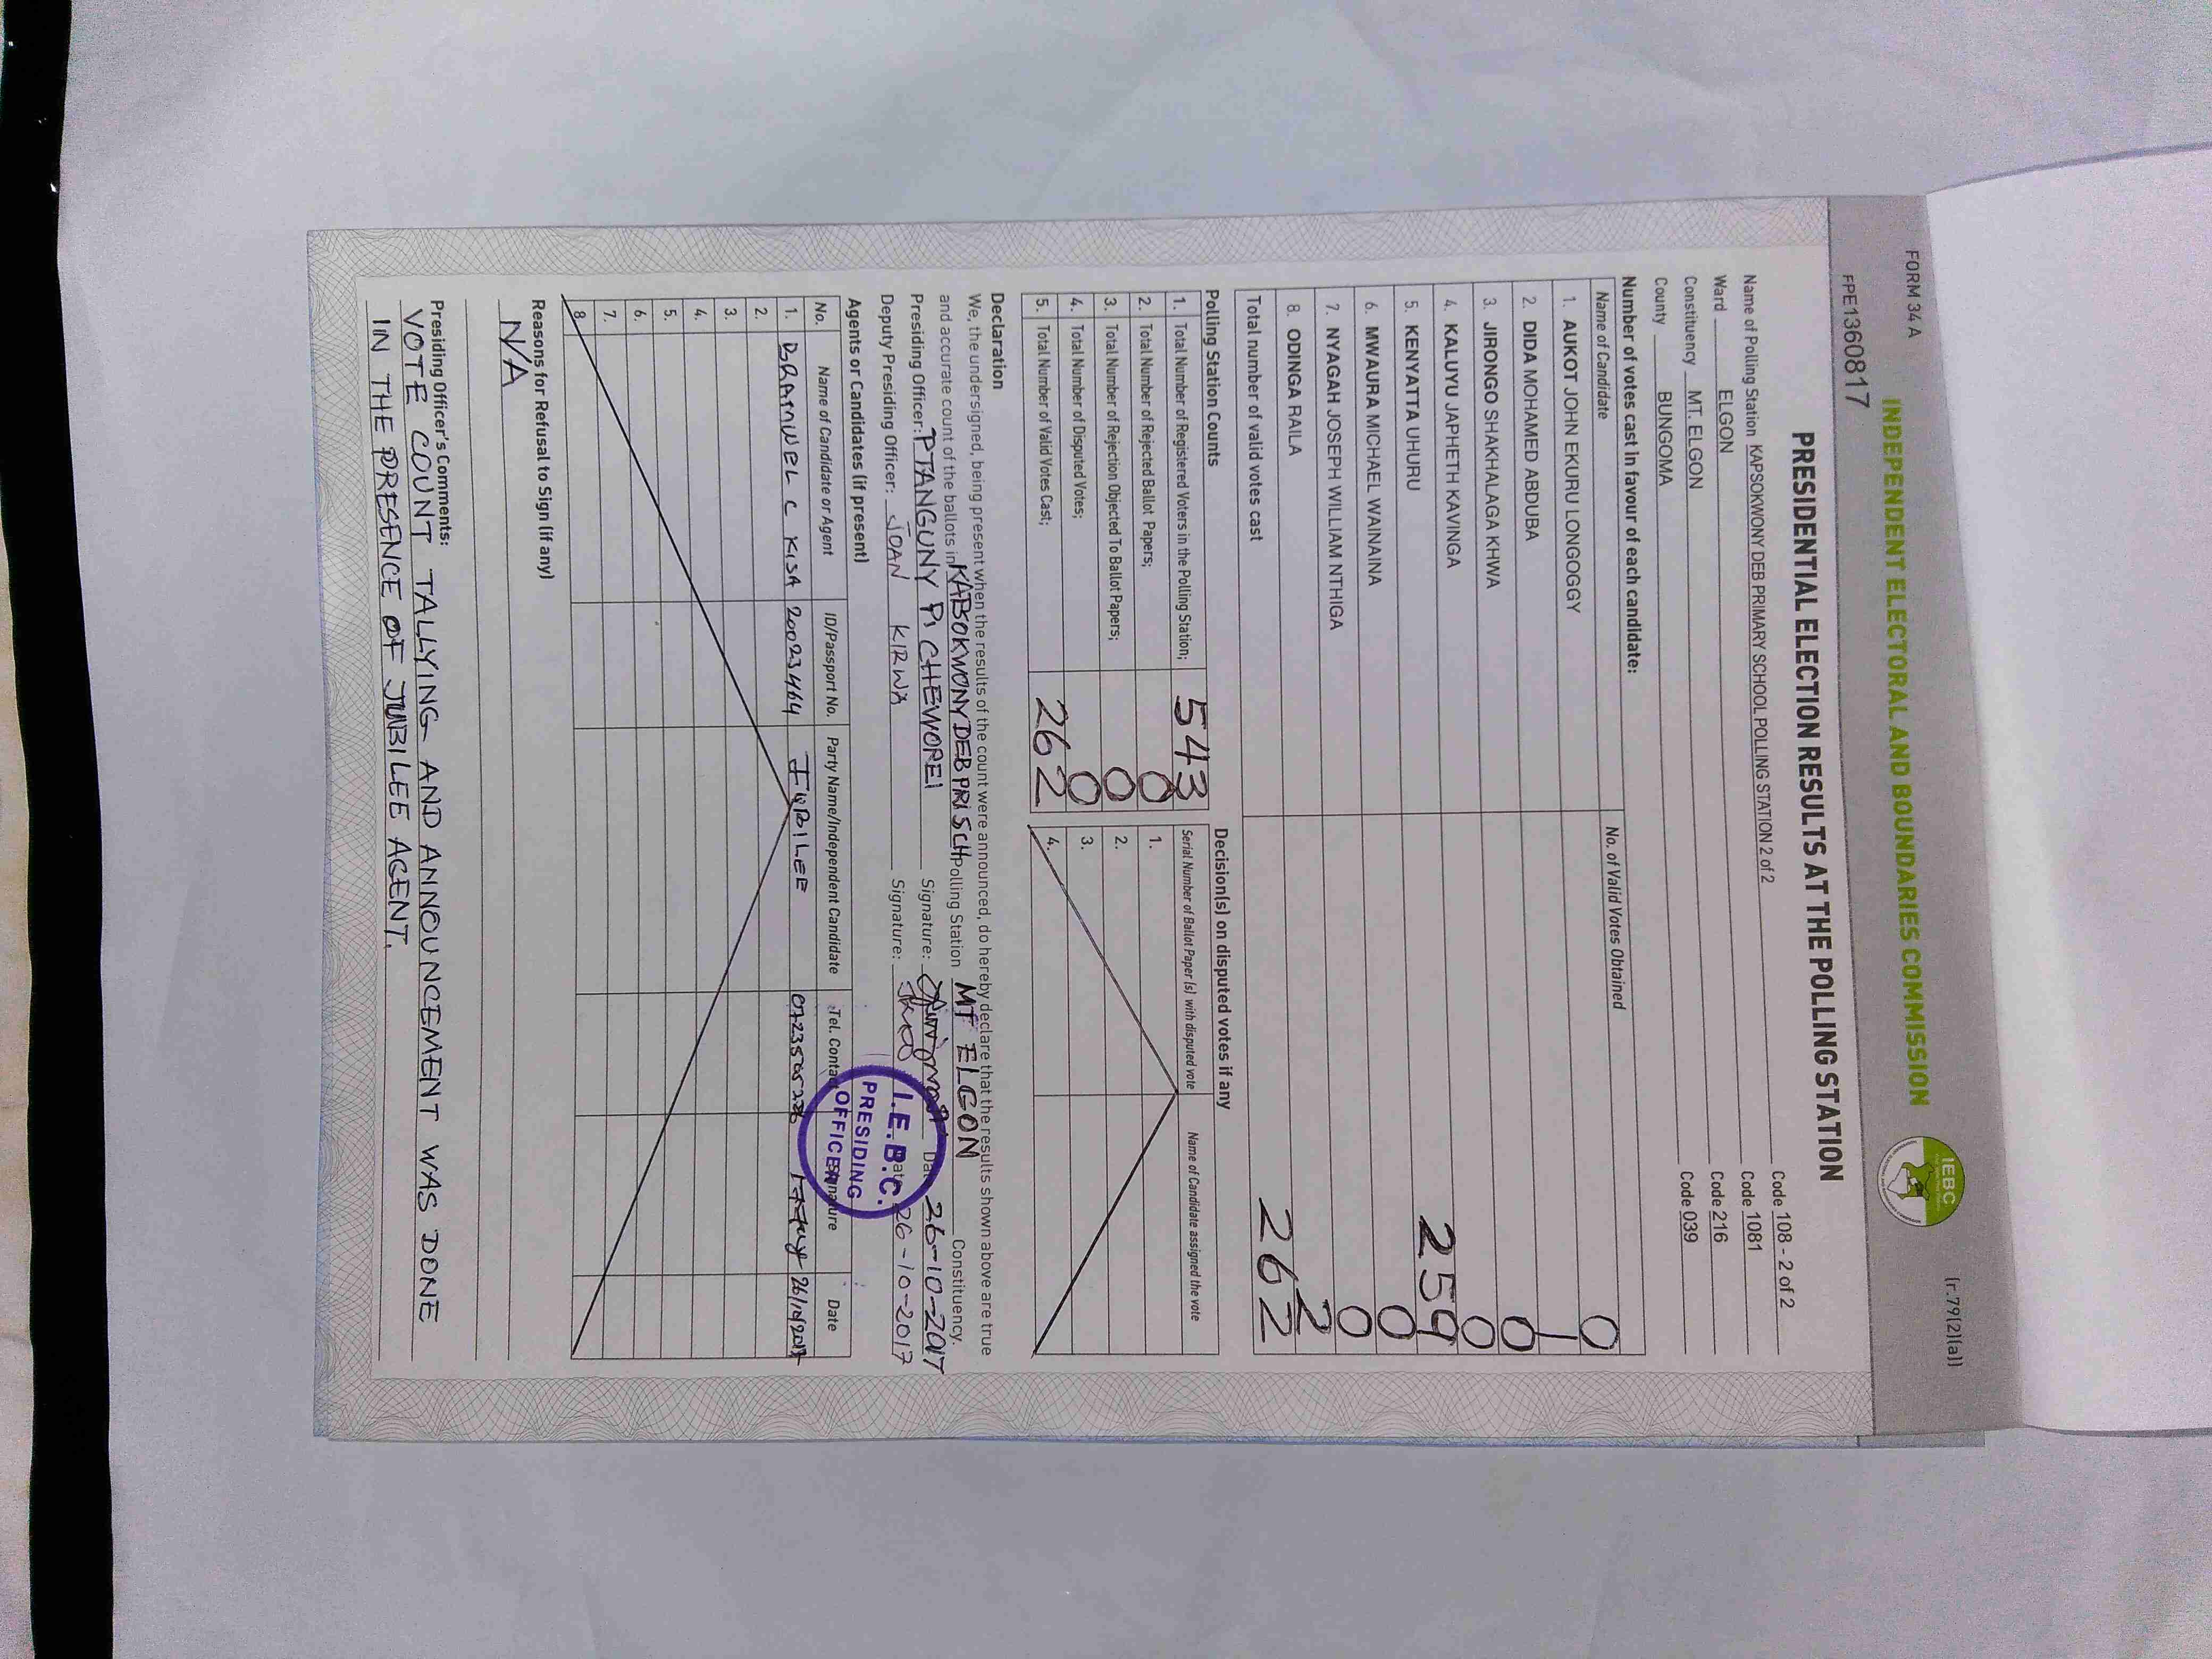 FORM 34 A
(r.79(2)(a))
INDEPENDENT ELECTORAL AND BOUNDARIES COMMISSION
IEBC
FPE1360817
PRESIDENTIAL ELECTION RESULTS AT THE POLLING STATION
Name of Polling Station KAPSOKWONY DEB PRIMARY SCHOOL POLLING STATION 2 of 2 Code 108 - 2 of 2
Ward ELGON Code 1081
Constituency MT. ELGON Code 216
County BUNGOMA Code 039
Number of votes cast in favour of each candidate:
Name of Candidate No. of Valid Votes Obtained
1. AUKOT JOHN EKURU LONGOGGY 0
2. DIDA MOHAMED ABDUBA 1
3. JIRONGO SHAKHALAGA KHWA 0
4. KALUYU JAPHETH KAVINGA 0
5. KENYATTA UHURU 259
6. MWAURA MICHAEL WAINAINA 0
7. NYAGAH JOSEPH WILLIAM NTHIGA 0
8. ODINGA RAILA 2
Total number of valid votes cast 262
Polling Station Counts
1. Total Number of Registered Voters in the Polling Station; 543
2. Total Number of Rejected Ballot Papers; 0
3. Total Number of Rejection Objected To Ballot Papers; 0
4. Total Number of Disputed Votes; 0
5. Total Number of Valid Votes Cast; 262
Decision(s) on disputed votes if any
Serial Number of Ballot Paper (s) with disputed vote Name of Candidate assigned the vote
1.
2.
3.
4.
Declaration
We, the undersigned, being present when the results of the count were announced, do hereby declare that the results shown above are true
and accurate count of the ballots in KABOKWONY DEB PRI SCH Polling Station MT ELGON Constituency.
Presiding Officer: PTANGUNY P. CHEWOREI Signature: Date 26-10-2017
Deputy Presiding Officer: JOAN KIRWA Signature: Date 26-10-2017
I.E.B.C.
PRESIDING
OFFICER
Agents or Candidates (if present)
No. Name of Candidate or Agent ID/Passport No. Party Name/Independent Candidate Tel. Contact Signature Date
1. BRAMWEL C KISA 20023464 JUBILEE 26/10/2017
2.
3.
4.
5.
6.
7.
8.
Reasons for Refusal to Sign (if any)
N/A
Presiding Officer's Comments:
VOTE COUNT TALLYING AND ANNOUNCEMENT WAS DONE
IN THE PRESENCE OF JUBILEE AGENT.